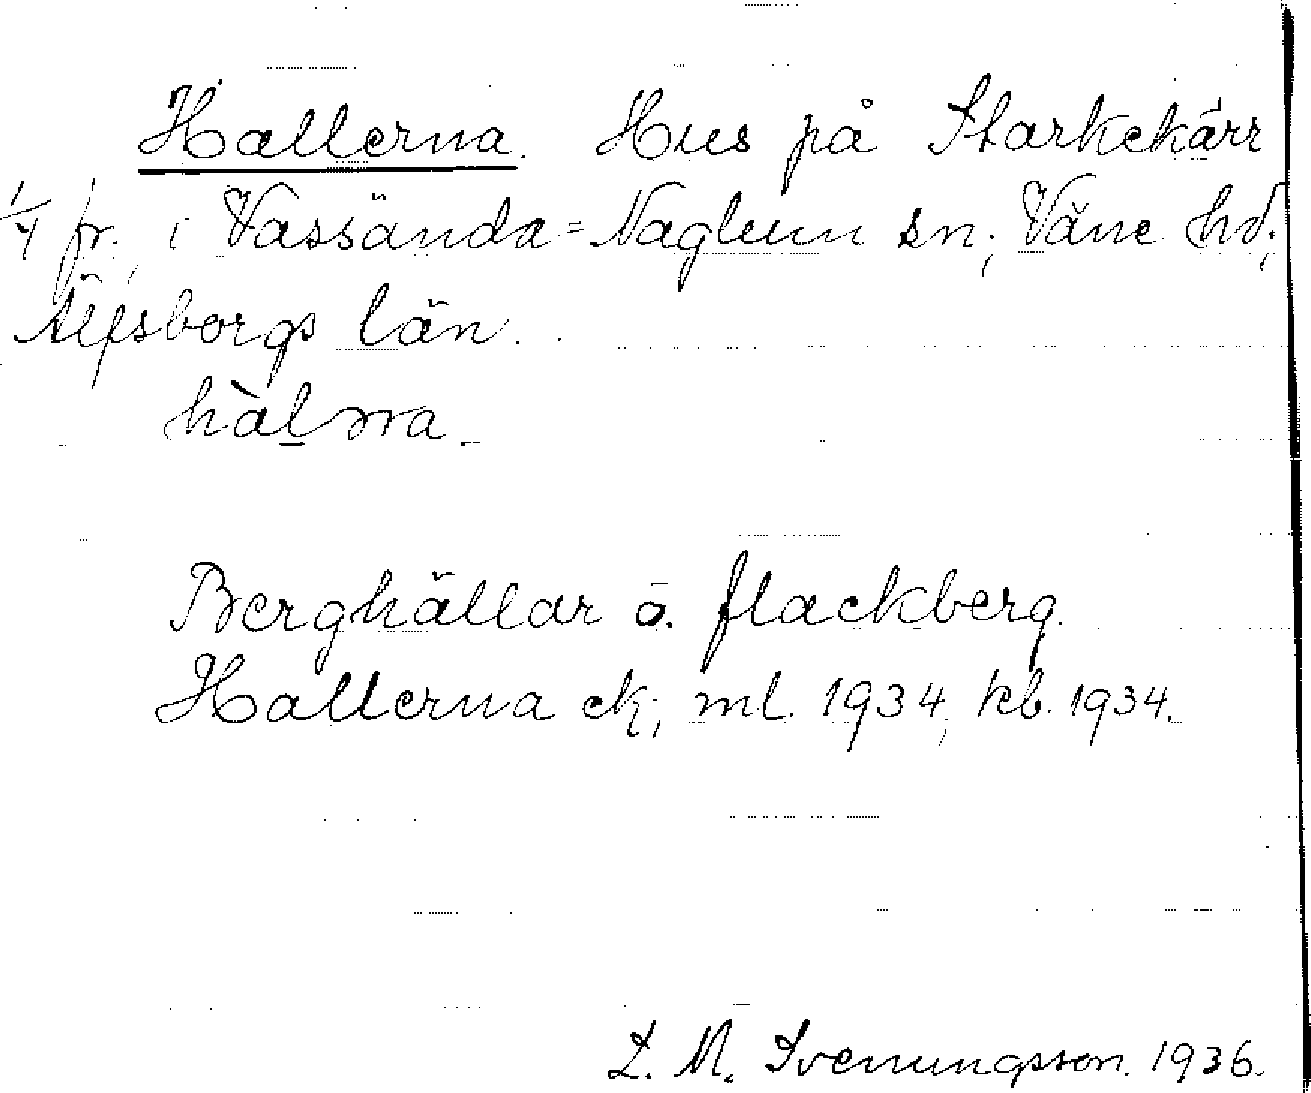 Hallerna. Hus på Starkekärr
1/4 fr., i Vassända=Naglum sn; Väne hd;
Älfsborgs län.
Berghällar o. flackberg.
Hallerna ek; ml. 1934, kb. 1934.
L. M. Svenungsson. 1936.